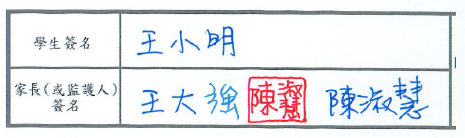 學生簽名 王小明
家長(或監護人)
簽名 王大強 陳淑慧 陳淑慧